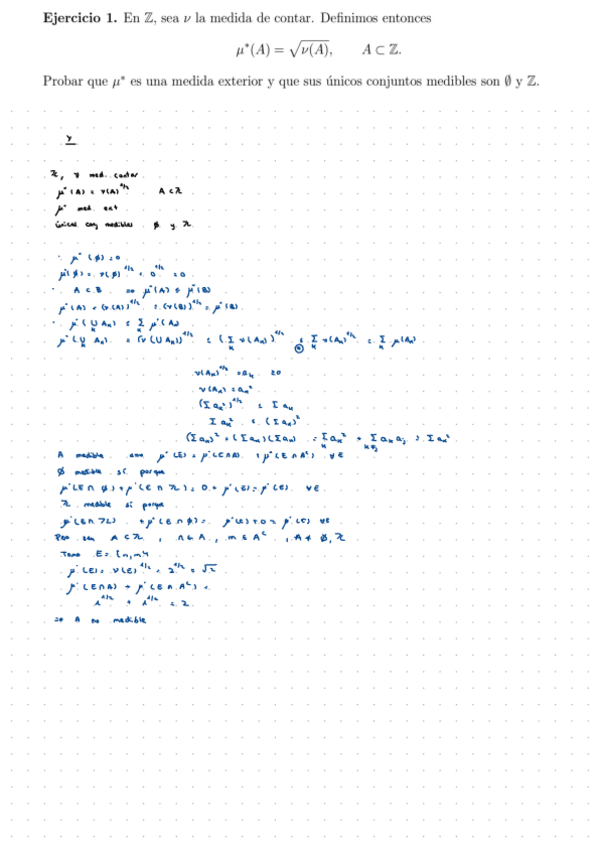 Ejercicio 1. En ℤ, sea ν la medida de contar. Definimos entonces
μ*(A) = √ν(A), A ⊂ ℤ.
Probar que μ* es una medida exterior y que sus únicos conjuntos medibles son ∅ y ℤ.
ℤ, ν med. contar
μ*(A) = ν(A)^{1/2} A ⊂ ℤ
μ* med. ext
únicos conj medibles ∅ y ℤ
· μ*(∅) = 0
μ*(∅) = ν(∅)^{1/2} = 0^{1/2} = 0
· A ⊂ B ⇒ μ*(A) ≤ μ*(B)
μ*(A) = (ν(A))^{1/2} ≤ (ν(B))^{1/2} = μ*(B)
· μ*(∪ A_n) ≤ Σ μ*(A_n)
μ*(∪ A_n) = (ν(∪ A_n))^{1/2} ≤ (Σ ν(A_n))^{1/2} ≤ Σ ν(A_n)^{1/2} = Σ μ(A_n)
ν(A_n)^{1/2} = a_n ≥ 0
ν(A_n) = a_n²
(Σ a_n²)^{1/2} ≤ Σ a_n
Σ a_n² ≤ (Σ a_n)²
(Σ a_n)² = (Σ a_n)(Σ a_n) = Σ a_n² + Σ a_n a_j ≥ Σ a_n²
A medible μ*(E) = μ*(E∩A) + μ*(E∩A^c) ∀E
∅ medible sí porque
μ*(E∩∅) + μ*(E∩ℤ) = 0 + μ*(E) = μ*(E) ∀E
ℤ medible sí porque
μ*(E∩ℤ) + μ*(E∩∅) = μ*(E) + 0 = μ*(E) ∀E
Pero sea A ⊂ ℤ, n ∈ A, m ∈ A^c, A ≠ ∅, ℤ
Tomo E = {n,m}
μ*(E) = ν(E)^{1/2} = 2^{1/2} = √2
μ*(E∩A) + μ*(E∩A^c) =
1^{1/2} + 1^{1/2} = 2
⇒ A no medible